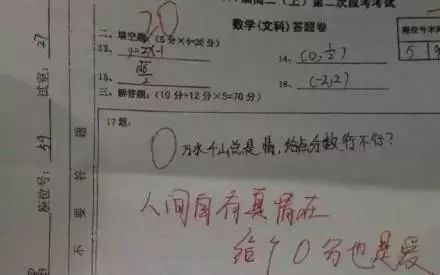 高二(上)第二次段考考试
数学(文科)答题卷
20
二、填空题:(5分×4=20分)
13、y=2x-1
14、(0,1/2)
15、
16、(-2,2)
三、解答题:(10分+12分×5=70分)
17题:
0
万水千山总是情,给点分数行不行?
人间自有真情在
给个0分也是爱
座位号
5
试室:27
座位号:59
不要答题